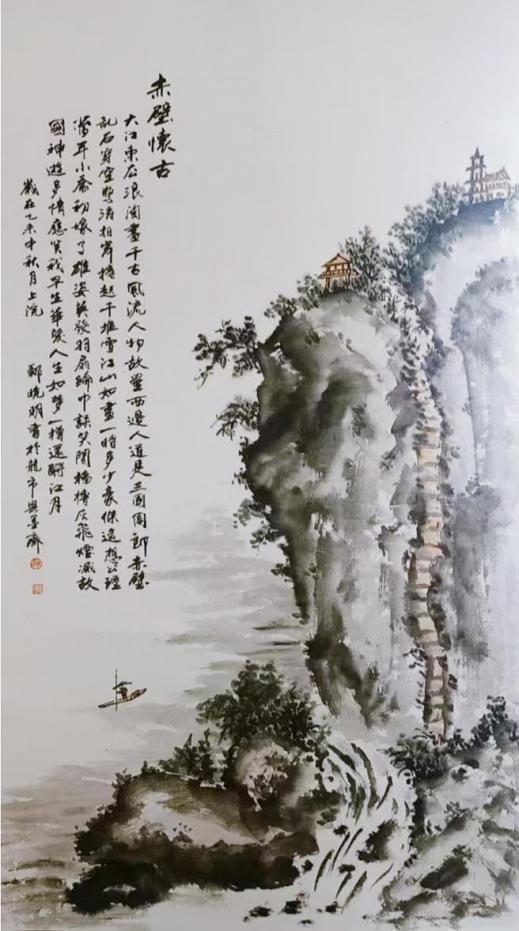 赤壁懷古
大江東去浪淘盡千古風流人物故壘西邊人道是三國周郎赤壁
乱石穿空驚濤拍岸捲起千堆雪江山如畫一時多少豪傑遥想公瑾
當年小喬初嫁了雄姿英發羽扇綸巾談笑間檣櫓灰飛煙滅故
國神遊多情應笑我早生華髮人生如夢一樽還酹江月
歲在乙未中秋月上浣 鄒晓明書於龍市墨齋